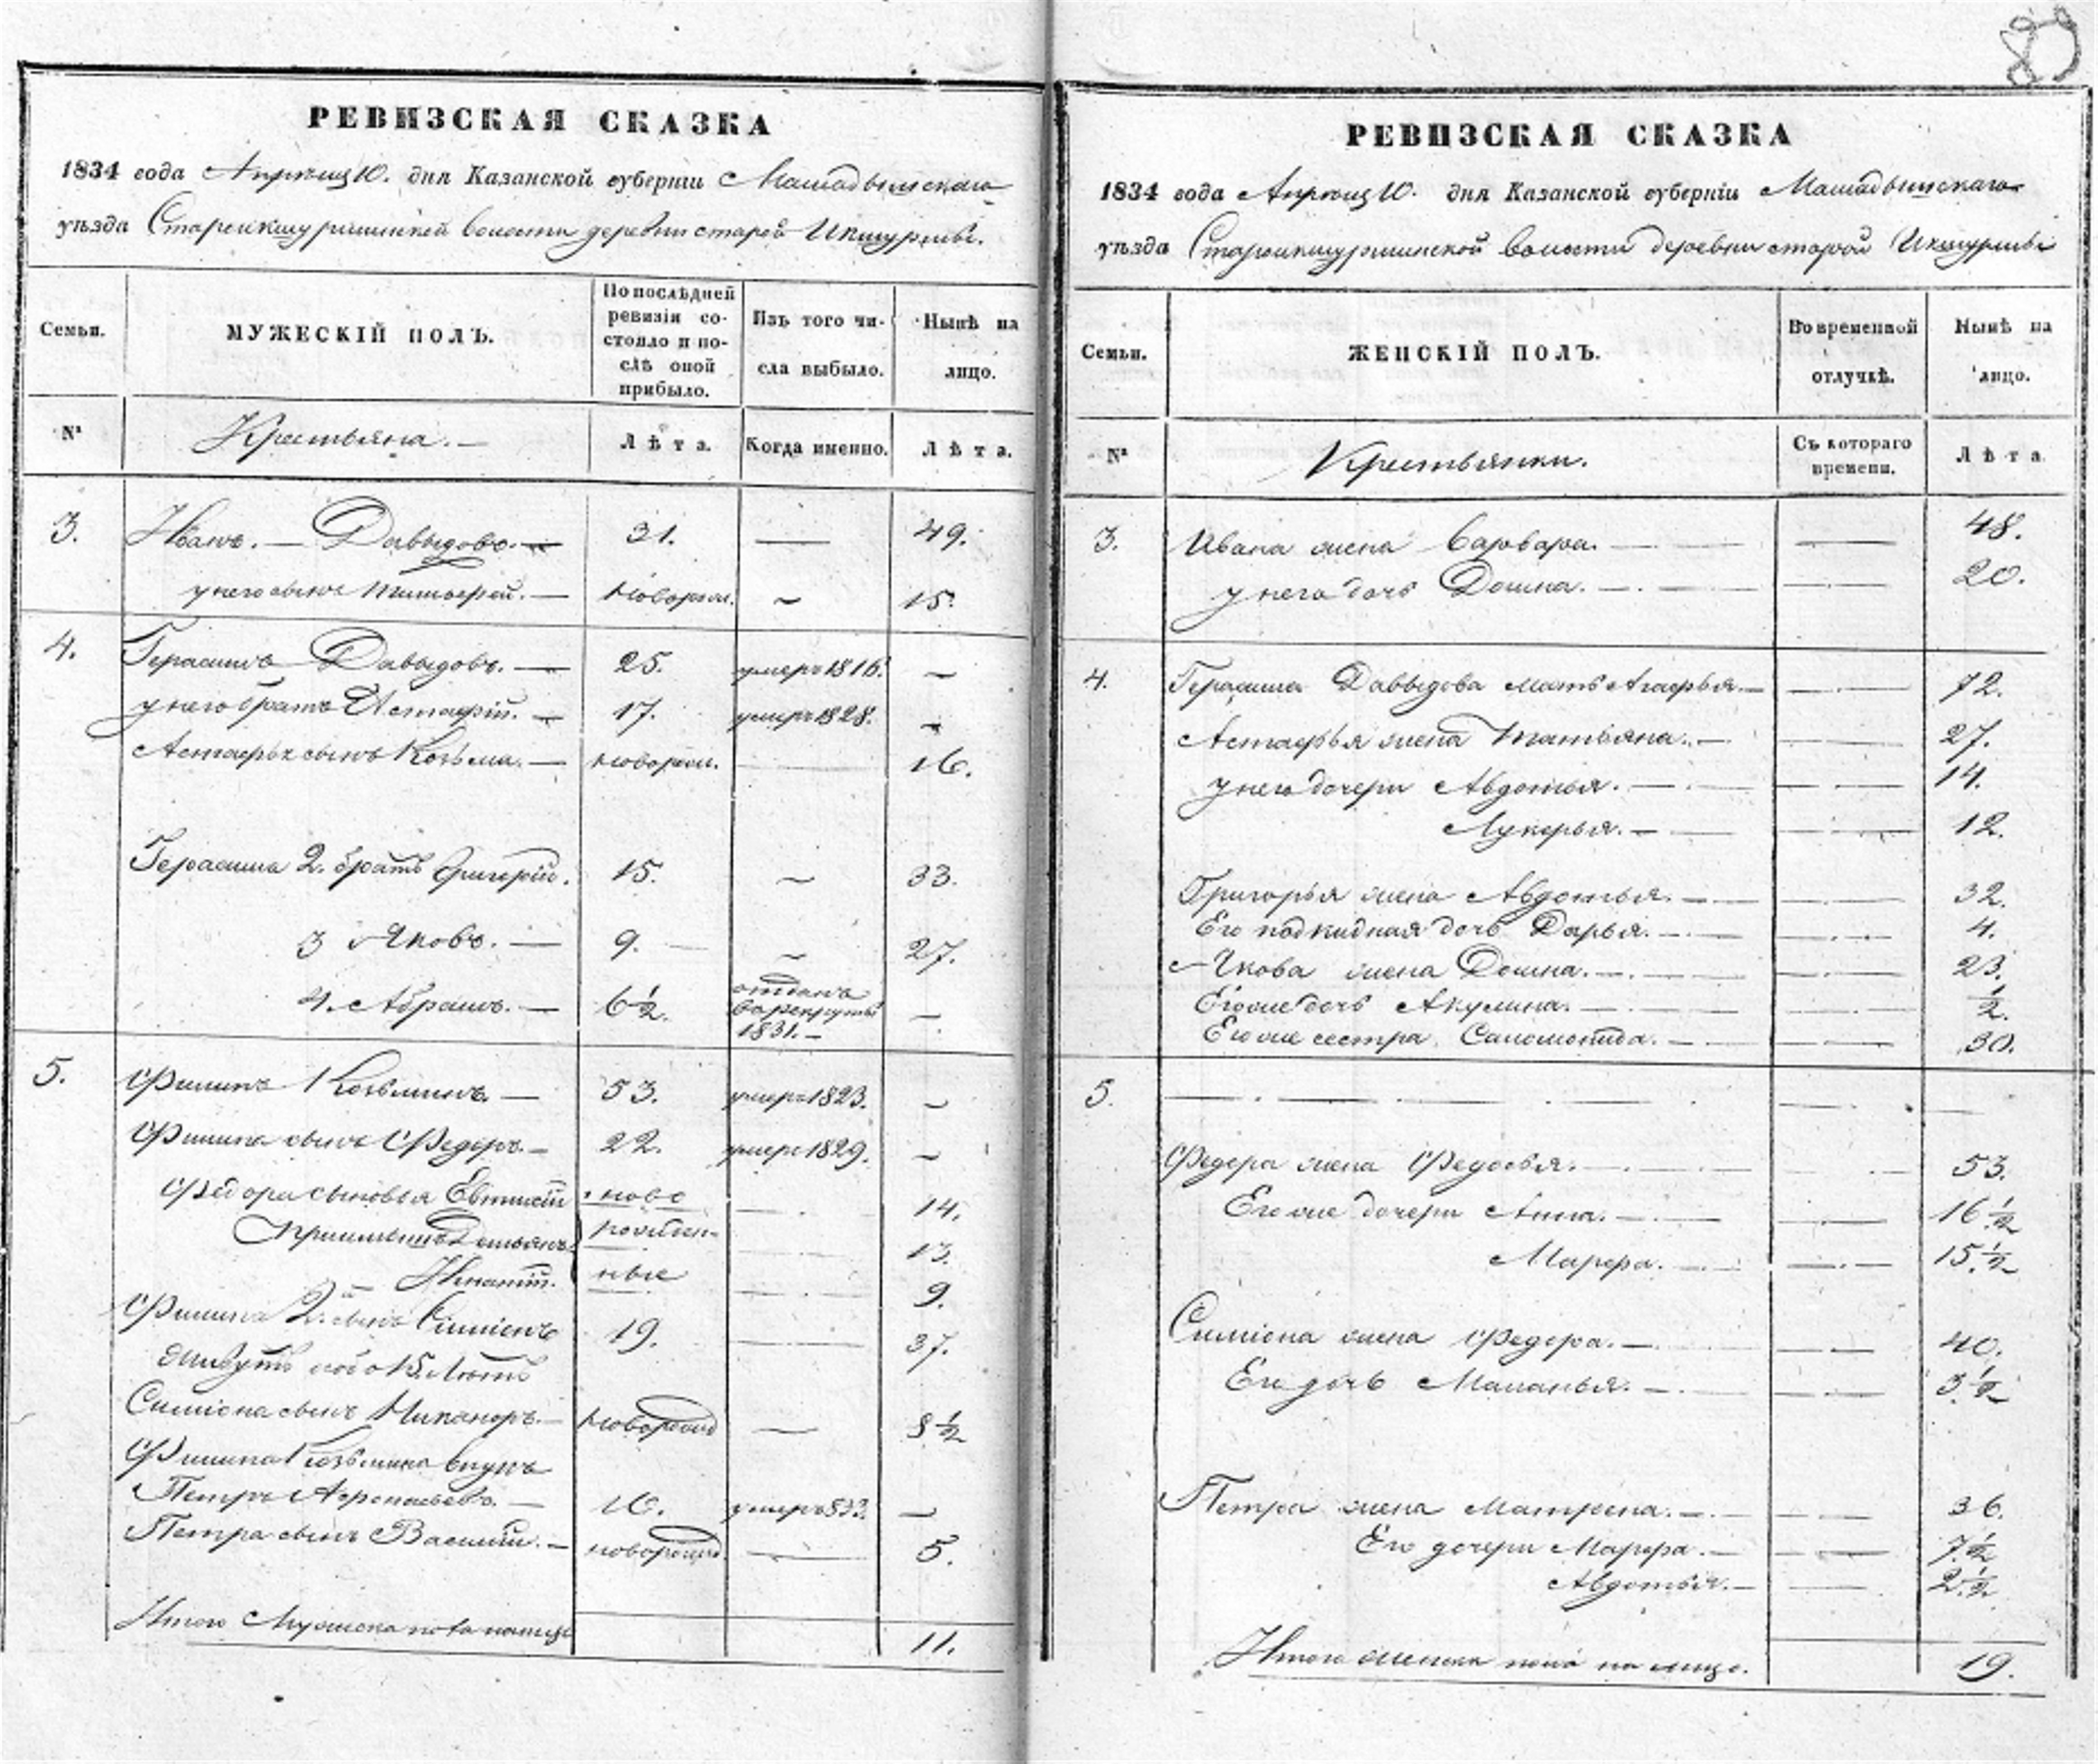 89
РЕВИЗСКАЯ СКАЗКА
1834 года Апреля 10. дня Казанской губерніи Мамадышскаго
уѣзда Староикшурминской волости деревни старой Икшурмы.
Семьи.
МУЖЕСКІЙ ПОЛЪ.
По послѣдней ревизіи состояло и послѣ оной прибыло.
Изъ того числа выбыло.
Нынѣ на лицо.
№
Крестьяна.
Лѣта.
Когда именно.
Лѣта.
3. Иванъ. Давыдовъ. 31. — 49.
у него сынъ Тимофей. новорож. 15.
4. Герасимъ Давыдовъ. 25. умеръ 1816. —
у него братъ Астафій. 17. умеръ 1828. —
Астафья сынъ Козьма. новорож. 16.
Герасима 2. братъ Григорій. 15. — 33.
3 Яковъ. 9. — 27.
4. Абрамъ. 6½. отданъ
в рекруты
1831. —
5. Филипъ Козьминъ. 53. умеръ 1823. —
Филипа сынъ Федоръ. 22. умеръ 1829. —
Федора сыновья Евтихій ново 14.
Демьянъ рожден- 13.
Игнатій. ные 9.
Филипа 2. сынъ Симіонъ 19. 37.
Симіона сынъ Никаноръ. новорожд — 8½
Филипа Козьмина внукъ
Петръ 16. умеръ 833. —
Петра сынъ Василій. новорожд. 5.
Итого Мужеска пола налицо 11.
РЕВИЗСКАЯ СКАЗКА
1834 года Апреля 10. дня Казанской губерніи Мамадышскаго
уѣзда Староикшурминской волости деревни старой Икшурмы
Семьи.
ЖЕНСКІЙ ПОЛЪ.
Во временной отлучкѣ.
Нынѣ на лицо.
№
Крестьянки.
Съ котораго времени.
Лѣта
3. Ивана жена Варвара. 48.
у него дочь Домна. 20.
4. Герасима Давыдова мать Агафья. 72.
Астафья жена Татьяна. 27.
у него дочери Авдотья. 14.
Лукерья. 12.
Григорья жена Авдотья. 32.
Его подкидная дочь Дарья. 4.
Якова жена Домна. 23.
Его же дочь Акулина. ½.
Его же сестра Саломонида. 30.
5. —
Федора жена Федосья. 53.
Его же дочери Анна. 16½
Марфа. 15½
Симіона жена Федора. 40.
Его дочь Маланья. 3½
Петра жена Матрена. 36.
Его дочери Марфа. 7½
Авдотья. 2½
Итого женска пола на лицо. 19.